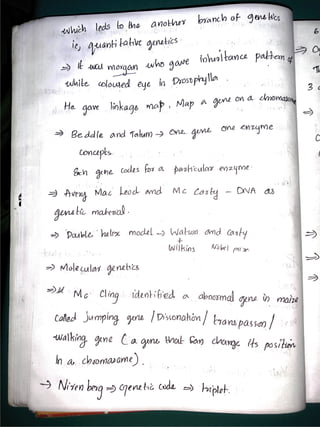 which leds to the another branch of genetics
ie, quantitative genetics
⇒ It was morgan who gave inheritance pattern of
white coloured eye in Drosophylla.
He gave linkage map, Map a gene on a chromosome
⇒ Beddle and Tatum → One gene one enzyme
concepts.
Each gene codes for a particular enzyme.
⇒ Avery Mac Leod and Mc Carty - DNA as
genetic material.
⇒ Double helex model → Watson and carty
+
Wilkins Nobel prize
⇒ Molecular genetics
⇒ Mc Cling identified a abnormal gene in maize
called jumping gene / Dissociation / transposson /
walking gene ( a gene that can change its position
in a chromosome).
→ Nirenberg ⇒ genetic code ⇒ triplet.
6
⇒
3
⇒
⇒
⇒
⇒